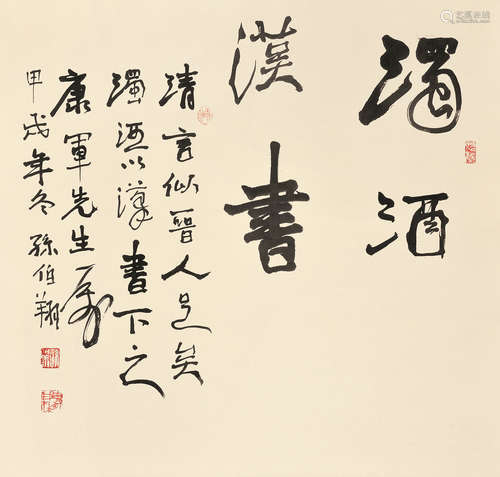 濁酒
漢書
清言似晉人足矣
濁酒以漢書下之
康軍先生属
甲戌年冬孫伯翔